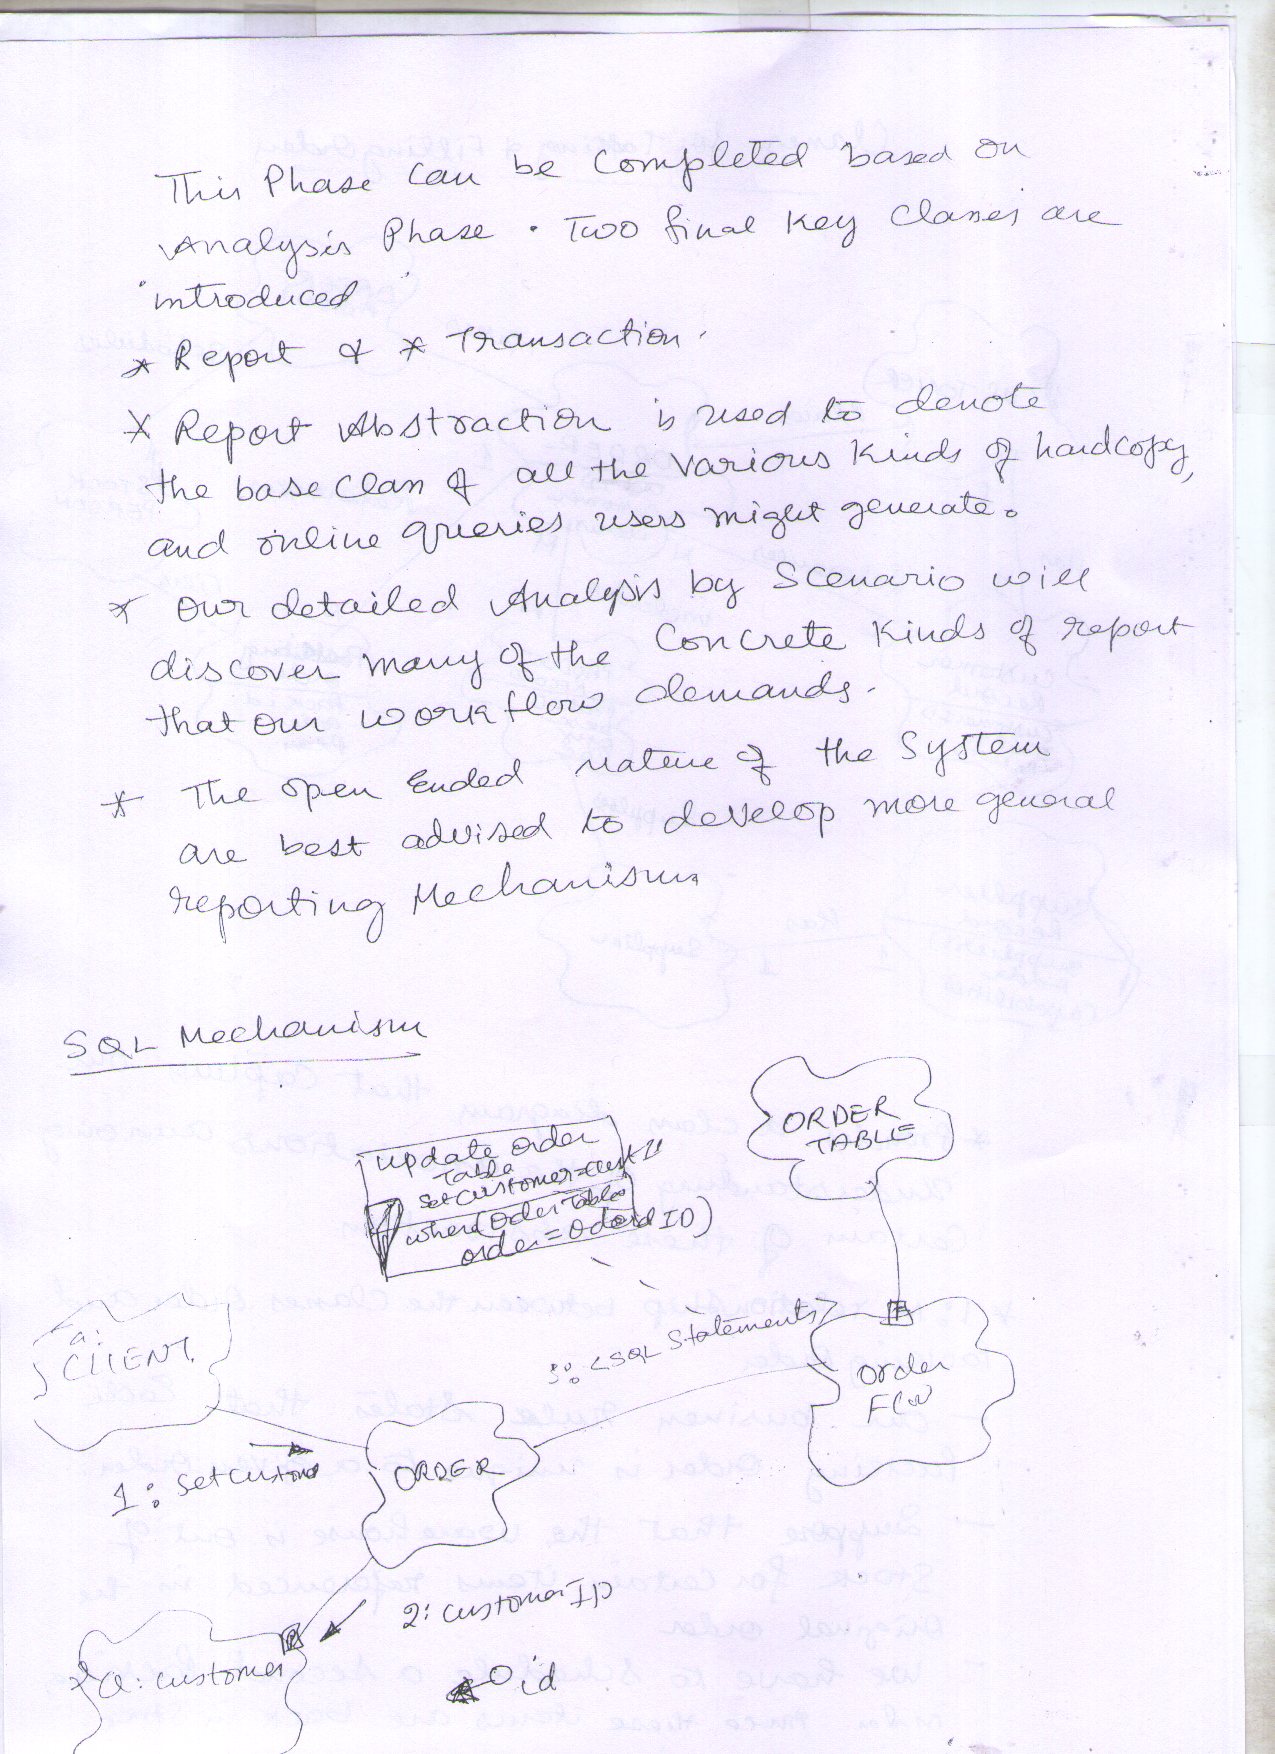 This Phase can be Completed based on
Analysis Phase. Two final Key Classes are
introduced
* Report & * Transaction.
* Report Abstraction is used to denote
the base Class of all the various Kinds of hardcopy,
and online queries users might generate.
* Our detailed Analysis by Scenario will
discover many of the Concrete Kinds of report
that our workflow demands.
* The open Ended nature of the System
are best advised to develop more general
reporting Mechanism
SQL Mechanism
ORDER
TABLE
update order
Table
Set Customer=
where(OrderTable
order=
a:
CLIENT
3: <SQL Statements>
Order
ORDER
1: SetCustome
2: CustomerID
a: Customer
P
id